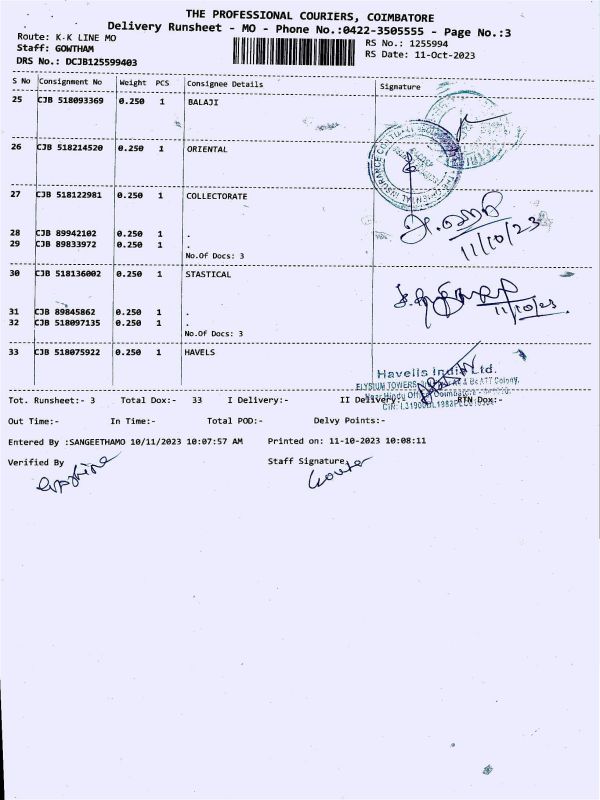 THE PROFESSIONAL COURIERS, COIMBATORE
Delivery Runsheet - MO - Phone No.:0422-3505555 - Page No.:3
Route: K-K LINE MO
RS No.: 1255994
Staff: GOWTHAM
RS Date: 11-Oct-2023
DRS No.: DCJB125599403
S No Consignment No Weight PCS Consignee Details Signature
25 CJB 518093369 0.250 1 BALAJI
26 CJB 518214520 0.250 1 ORIENTAL
27 CJB 518122981 0.250 1 COLLECTORATE
28 CJB 89942102 0.250 1 .
29 CJB 89833972 0.250 1 .
No.Of Docs: 3
11/10/23
30 CJB 518136002 0.250 1 STASTICAL
31 CJB 89845862 0.250 1 .
11/10/23
32 CJB 518097135 0.250 1 .
No.Of Docs: 3
33 CJB 518075922 0.250 1 HAVELS
Havells India Ltd.
ELYSIUM TOWERS
Colony,
Tot. Runsheet:- 3 Total Dox:- 33 I Delivery:- II Delivery:- RTN Dox:-
Out Time:- In Time:- Total POD:- Delvy Points:-
Entered By :SANGEETHAMO 10/11/2023 10:07:57 AM Printed on: 11-10-2023 10:08:11
Verified By Staff Signature